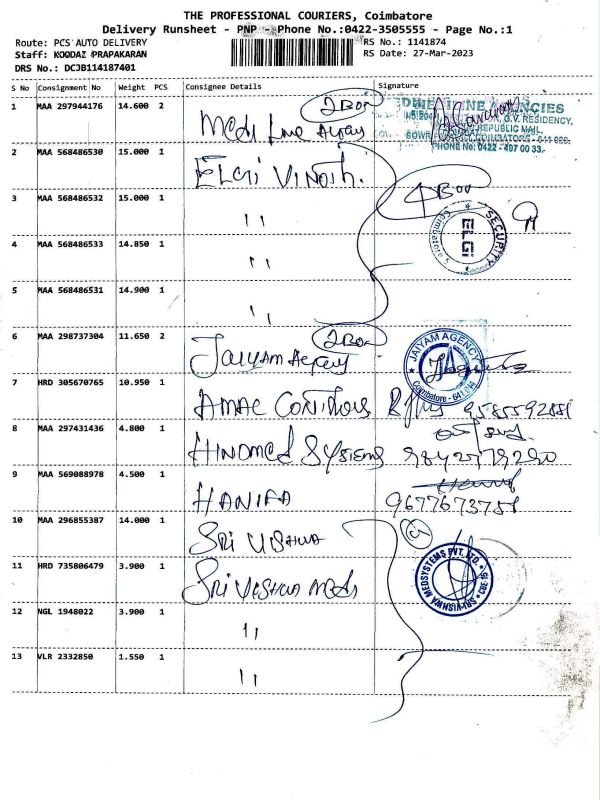 THE PROFESSIONAL COURIERS, Coimbatore
Delivery Runsheet - PNP - Phone No.:0422-3505555 - Page No.:1
Route: PCS AUTO DELIVERY
RS No.: 1141874
Staff: KOODAZ PRAPAKARAN
RS Date: 27-Mar-2023
DRS No.: DCJB114187401
S No Consignment No Weight PCS Consignee Details Signature
1 MAA 297944176 14.600 2 2 Box
AGENCIES
G.V. RESIDENCY,
REPUBLIC MAIL,
COIMBATORE - 641
PHONE No: 0422 - 497 00 33.
2 MAA 568486530 15.000 1 ELGI VINOTH.
3 MAA 568486532 15.000 1 "
4 Box
SECURITY
ELGI
Coimbatore
4 MAA 568486533 14.850 1 "
5 MAA 568486531 14.900 1 "
6 MAA 298737304 11.650 2 Jaiyam Agency 2 Box
JAIYAM AGENCY
JA
Coimbatore - 641 014
7 HRD 305670765 10.950 1 AMAC
8 MAA 297431436 4.800 1 HINDMED SYSTEMS
9 MAA 569088978 4.500 1 HANIFA 9677673751
10 MAA 296855387 14.000 1 SRI VISHWA
11 HRD 735806479 3.900 1 SRI VISHWA MEDS
SRI VISHWA MEDSYSTEMS PVT. LTD.
CBE-18
12 NGL 1948022 3.900 1 "
13 VLR 2332850 1.550 1 "